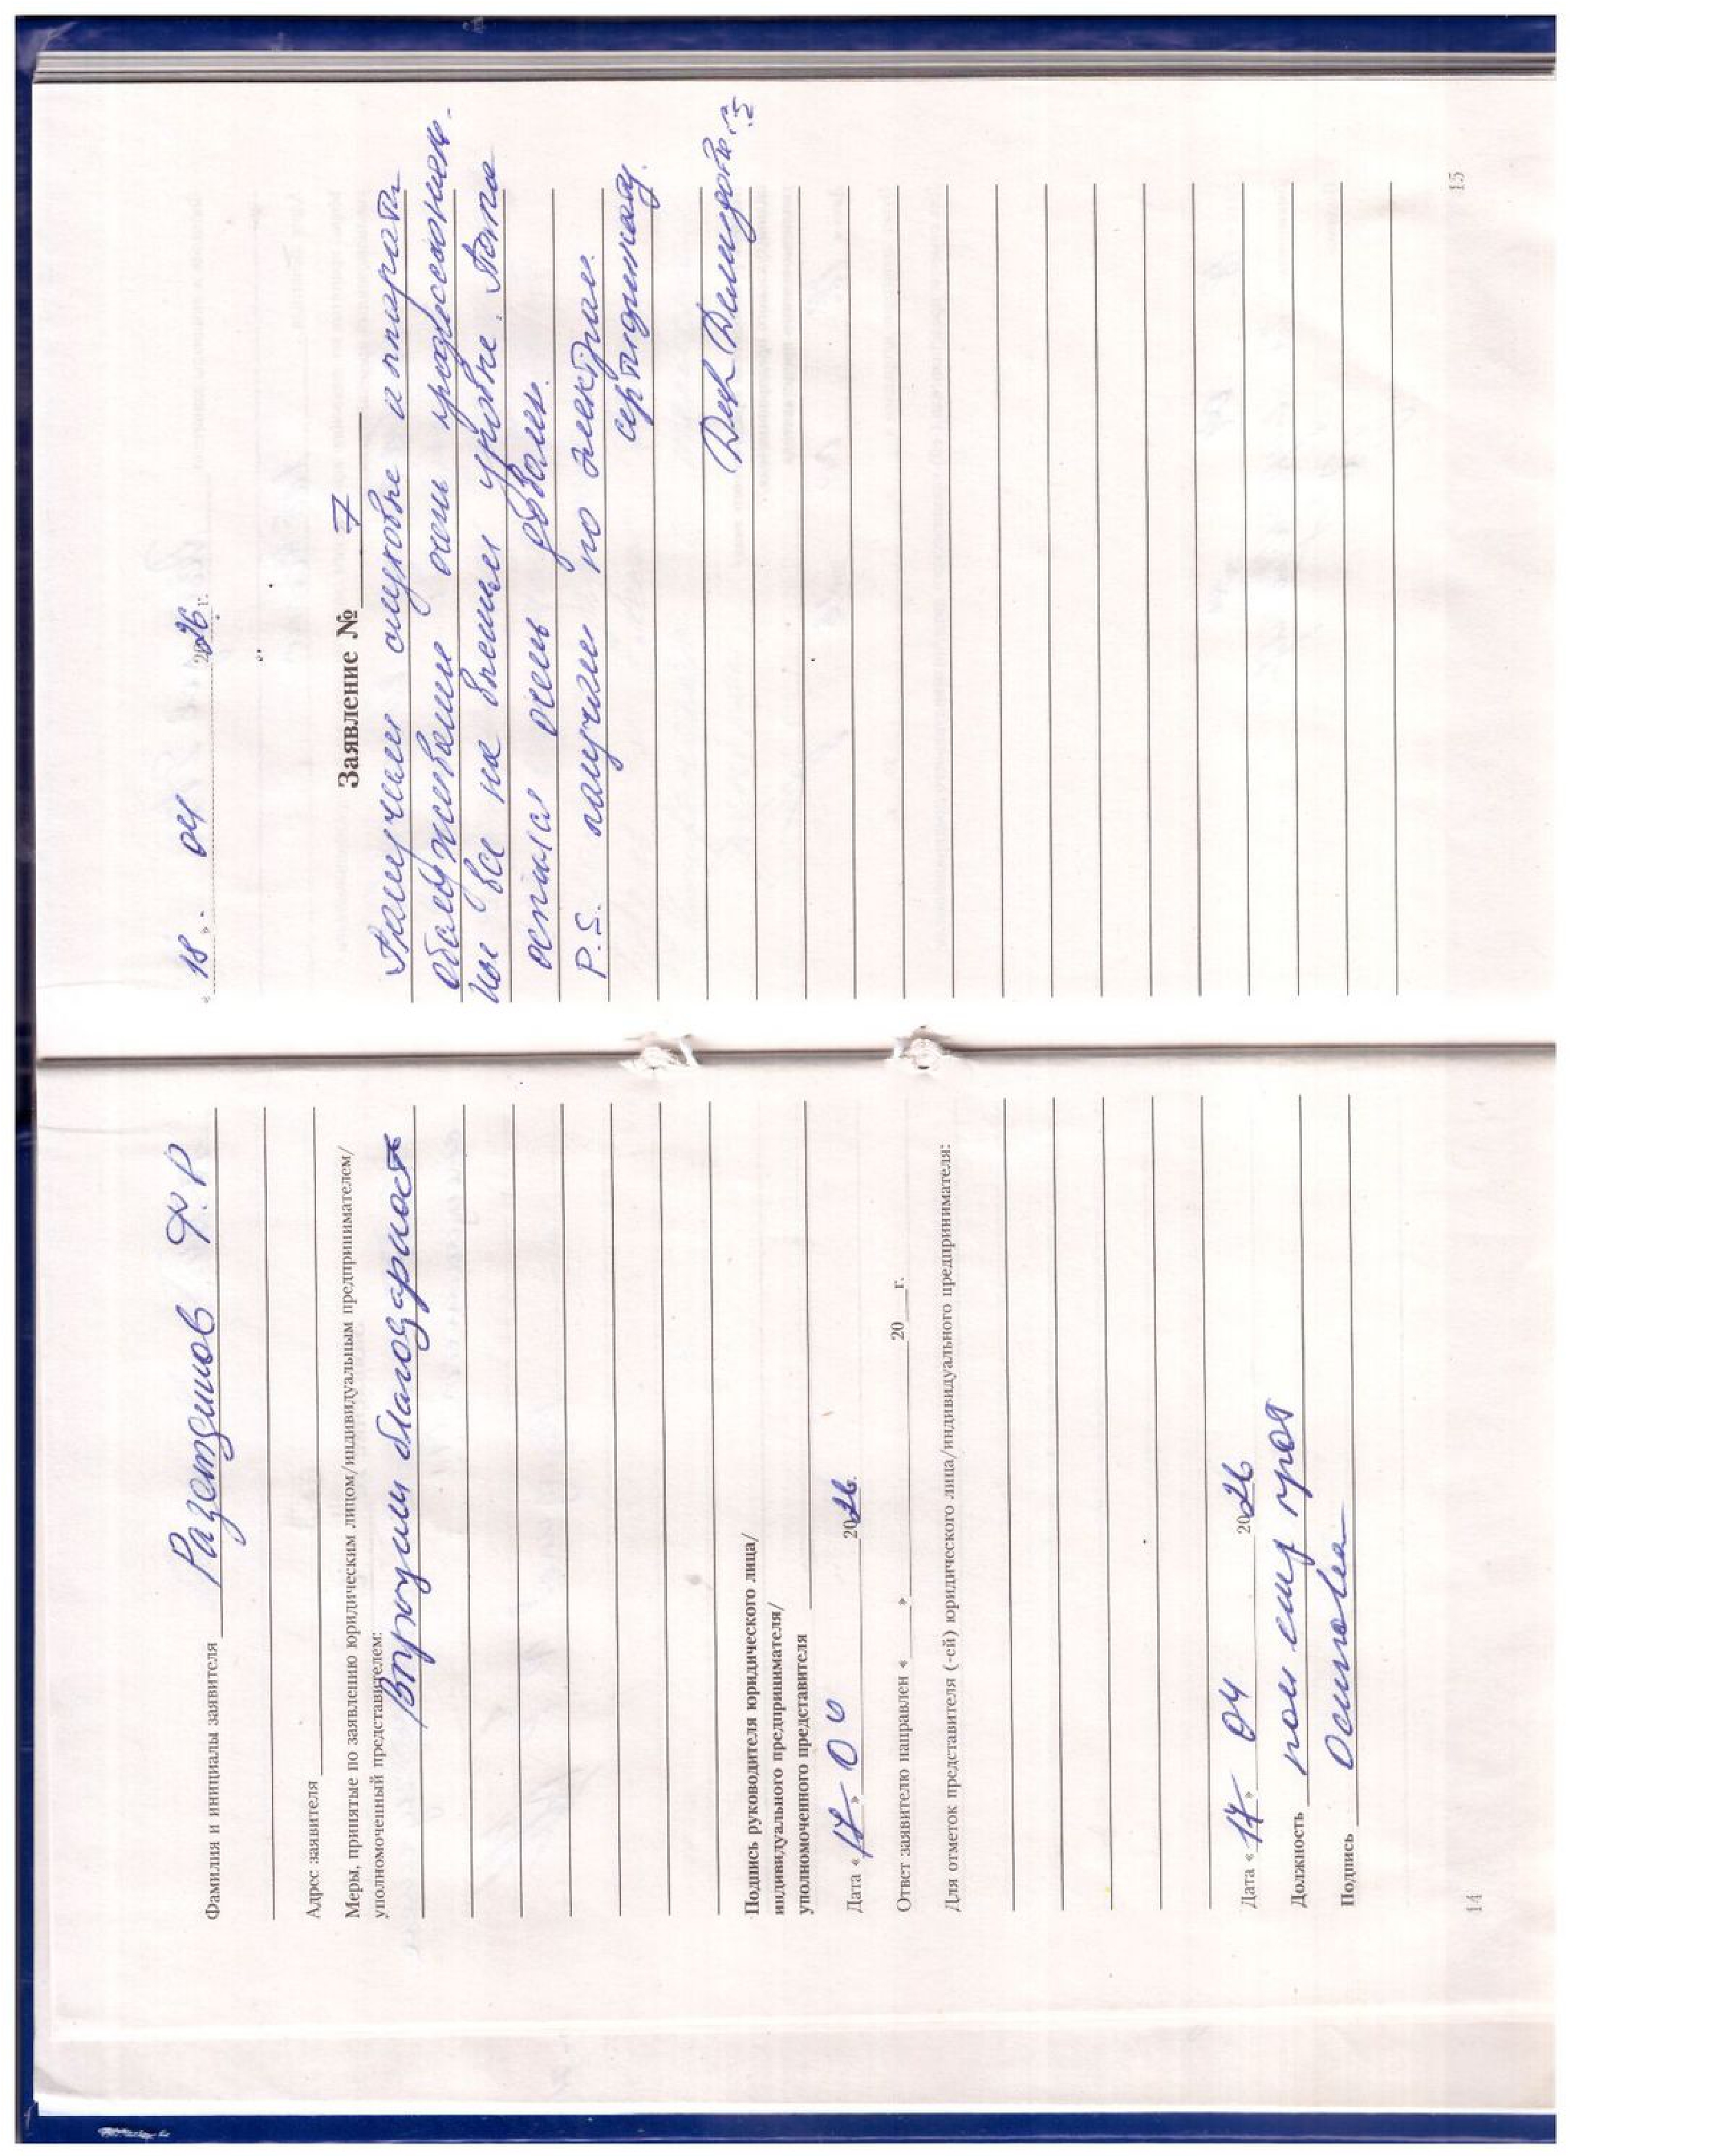 Фамилия и инициалы заявителя Разетдинов Ф.Р
Адрес заявителя
Меры, принятые по заявлению юридическим лицом/индивидуальным предпринимателем/
уполномоченный представителем:
благодарность
Подпись руководителя юридического лица/
индивидуального предпринимателя/
уполномоченного представителя
Дата « 17 » 2026.
Ответ заявителю направлен « » 20 г.
Для отметок представителя (-ей) юридического лица/индивидуального предпринимателя:
Дата « 17 » 04 2026
Должность
Подпись Осипова
14
« 18 » 04 2026 г.
Заявление № 7
Получили слуховые аппараты
обслуживание очень профессиональ-
ные все на высшем уровне. Папа
остался очень доволен.
P.S. получили по электрон.
сертификату.
15